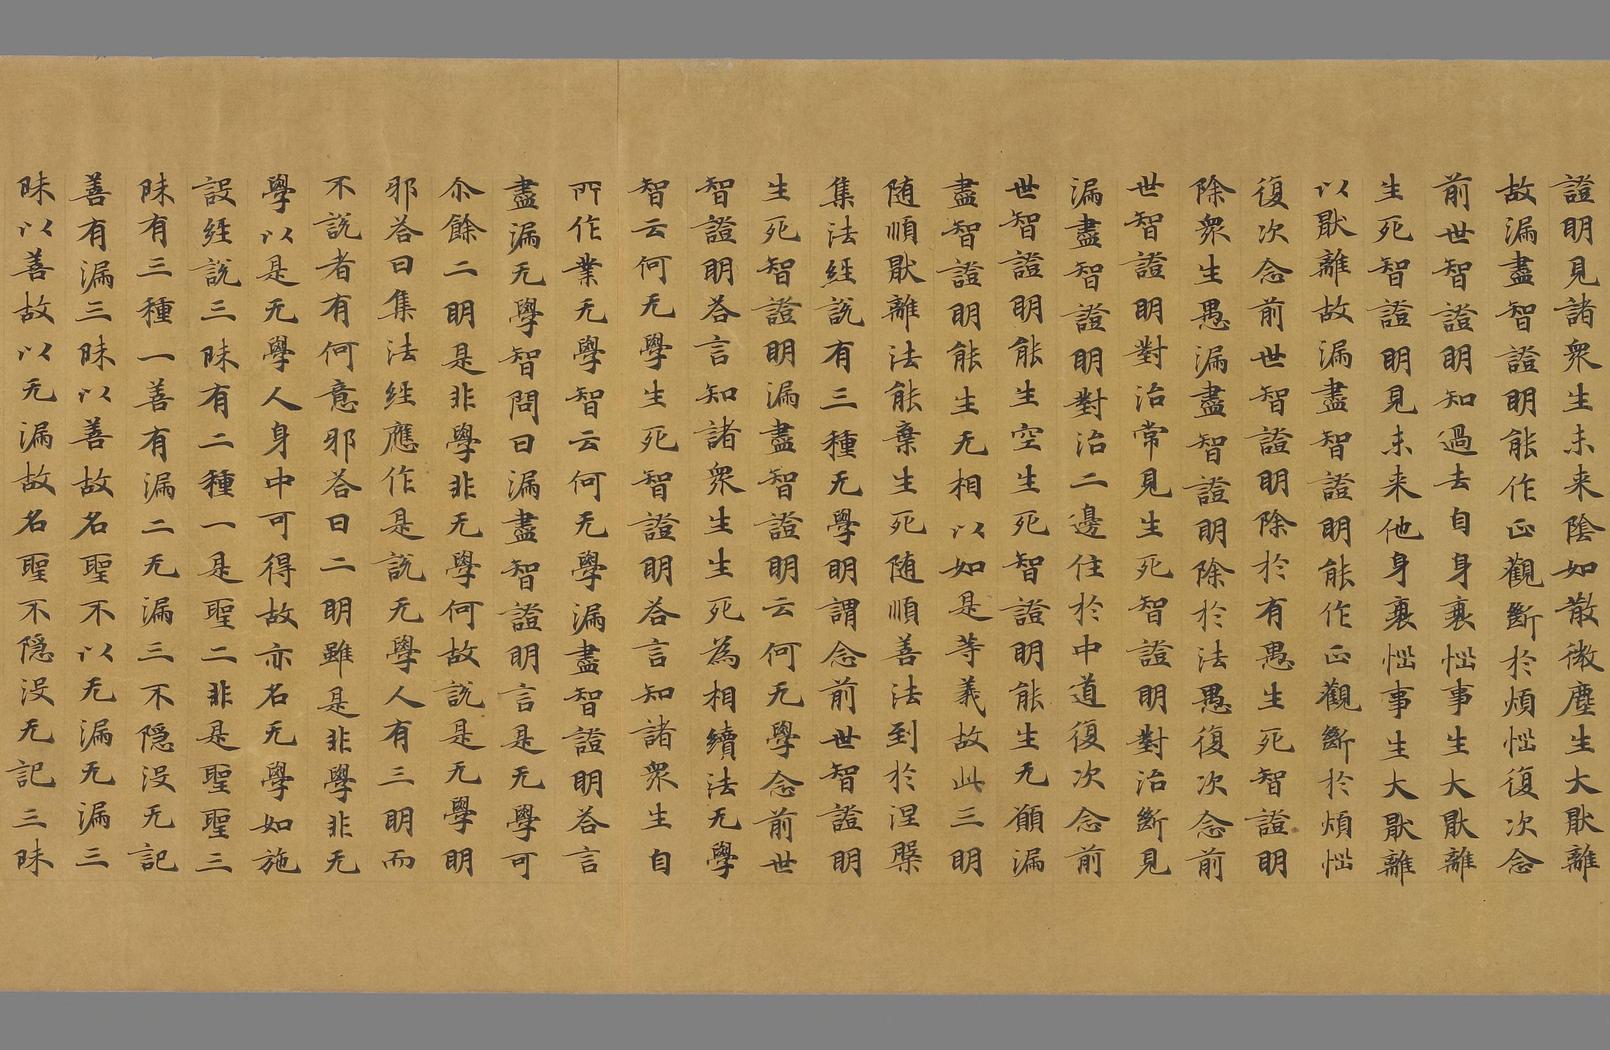 證明見諸衆生未来陰如散微塵生大猒離
故漏盡智證明能作正觀斷於煩惱復次念
前世智證明知過去自身衰惱事生大猒離
生死智證明見未来他身衰惱事生大猒離
以猒離故漏盡智證明能作正觀斷於煩惱
復次念前世智證明除於有愚生死智證明
除衆生愚漏盡智證明除於法愚復次念前
世智證明對治常見生死智證明對治斷見
漏盡智證明對治二邊住於中道復次念前
世智證明能生空生死智證明能生无願漏
盡智證明能生无相以如是等義故此三明
随順猒離法能棄生死随順善法到於涅槃
集法經說有三種无學明謂念前世智證明
生死智證明漏盡智證明云何无學念前世
智證明荅言知諸衆生生死為相續法无學
智云何无學生死智證明荅言知諸衆生自
所作業无學智云何无學漏盡智證明荅言
盡漏无學智問曰漏盡智證明言是无學可
尒餘二明是非學非无學何故說是无學明
邪荅曰集法經應作是說无學人有三明而
不說者有何意邪荅曰二明雖是非學非无
學以是无學人身中可得故亦名无學如施
設經說三昧有二種一是聖二非是聖聖三
昧有三種一善有漏二无漏三不隱没无記
善有漏三昧以善故名聖不以无漏无漏三
昧以善故以无漏故名聖不隱没无記三昧